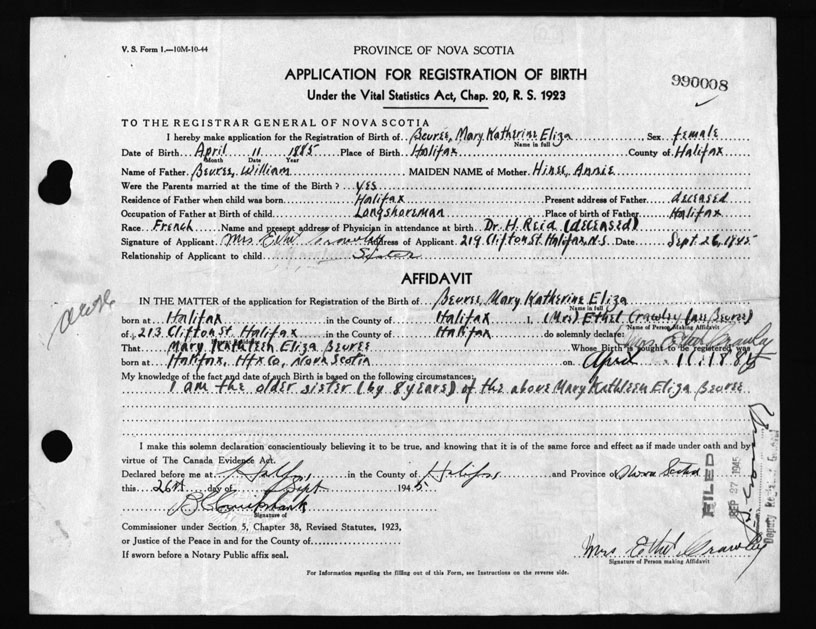 V. S. Form 1.—10M-10-44
PROVINCE OF NOVA SCOTIA
APPLICATION FOR REGISTRATION OF BIRTH
990008
Under the Vital Statistics Act, Chap. 20, R. S. 1923
TO THE REGISTRAR GENERAL OF NOVA SCOTIA
I hereby make application for the Registration of Birth of Beuree, Mary Katherine Eliza Sex female
Name in full
Date of Birth April 11 1885 Place of Birth Halifax County of Halifax
Month Date Year
Name of Father Beuree, William MAIDEN NAME of Mother Hines, Annie
Were the Parents married at the time of the Birth? yes
Residence of Father when child was born Halifax Present address of Father deceased
Occupation of Father at Birth of child Longshoreman Place of birth of Father Halifax
Race French Name and present address of Physician in attendance at birth Dr. H. Reid (deceased)
Signature of Applicant Mrs Ethel Crawley Address of Applicant 219 Clifton St. Halifax, N.S. Date Sept. 26, 1945
Relationship of Applicant to child Sister
AFFIDAVIT
IN THE MATTER of the application for Registration of the Birth of Beuree, Mary Katherine Eliza
Name in full
born at Halifax in the County of Halifax I, (Mrs) Ethel Crawley (nee Beuree)
Name of Person Making Affidavit
of 213 Clifton St. Halifax in the County of Halifax do solemnly declare:
Mrs. Ethel Crawley
That Mary Kathleen Eliza Beuree Whose Birth is sought to be registered was
born at Halifax, Hfx Co, Nova Scotia on April 11, 1885
My knowledge of the fact and date of such Birth is based on the following circumstances:
I am the older sister (by 8 years) of the above Mary Kathleen Eliza Beuree
I make this solemn declaration conscientiously believing it to be true, and knowing that it is of the same force and effect as if made under oath and by
virtue of The Canada Evidence Act.
Declared before me at Halifax in the County of Halifax and Province of Nova Scotia
this 26th day of Sept 1945
Signature of
Commissioner under Section 5, Chapter 38, Revised Statutes, 1923,
or Justice of the Peace in and for County of
If sworn before a Notary Public affix seal.
Mrs Ethel Crawley
Signature of Person making Affidavit
For Information regarding the filling out of this Form, see Instructions on the reverse side.
FILED
SEP 27 1945